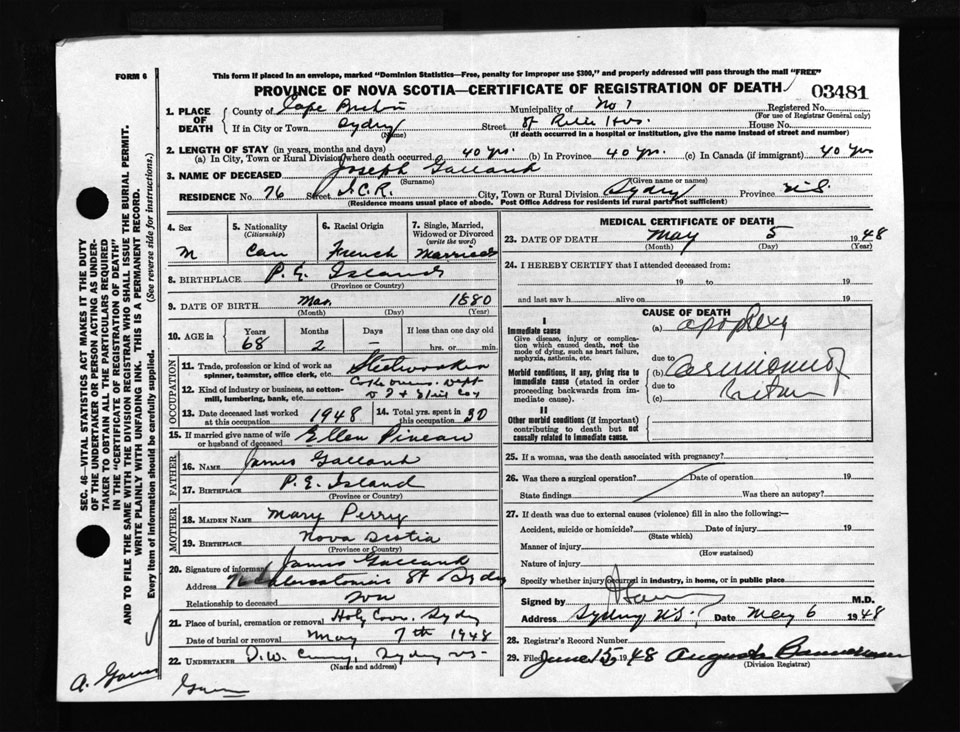 FORM 6
This form if placed in an envelope, marked "Dominion Statistics—Free, penalty for improper use $300," and properly addressed will pass through the mail "FREE"
PROVINCE OF NOVA SCOTIA—CERTIFICATE OF REGISTRATION OF DEATH 03481
1. PLACE OF DEATH
County of Cape Breton Municipality of No 7 Registered No.
(For use of Registrar General only)
If in City or Town Sydney Street House No.
(Name) (If death occurred in a hospital or institution, give the name instead of street and number)
2. LENGTH OF STAY (in years, months and days)
(a) In City, Town or Rural Division where death occurred 40 yrs. (b) In Province 40 yrs. (c) In Canada (if immigrant) 40 yrs
3. NAME OF DECEASED Joseph Gallant
(Surname) (Given name or names)
RESIDENCE No 76 Street City, Town or Rural Division Sydney Province N.S.
(Residence means usual place of abode. Post Office Address for residents in rural parts not sufficient)
4. Sex
M
5. Nationality
(Citizenship)
Can
6. Racial Origin
French
7. Single, Married, Widowed or Divorced
(write the word)
Married
8. BIRTHPLACE P. E. Island
(Province or Country)
9. DATE OF BIRTH Mar. 1880
(Month) (Day) (Year)
10. AGE in
Years Months Days If less than one day old
68 2 – hrs. or min.
OCCUPATION
11. Trade, profession or kind of work as spinner, teamster, office clerk, etc. Steelworker
12. Kind of industry or business, as cotton-mill, lumbering, bank, etc. Coke Ovens Dept
13. Date deceased last worked at this occupation 1948
14. Total yrs. spent in this occupation 30
15. If married give name of wife or husband of deceased Ellen Pineau
FATHER
16. NAME James Gallant
17. BIRTHPLACE P. E. Island
(Province or Country)
MOTHER
18. MAIDEN NAME Mary Perry
19. BIRTHPLACE Nova Scotia
(Province or Country)
20. Signature of informant James Gallant
Address St Sydney
Relationship to deceased Son
21. Place of burial, cremation or removal Holy Cross, Sydney
Date of burial or removal May 7th 1948
22. UNDERTAKER D.W. Sydney NS
(Name and address)
MEDICAL CERTIFICATE OF DEATH
23. DATE OF DEATH May 5 1948
(Month) (Day) (Year)
24. I HEREBY CERTIFY that I attended deceased from:
19 to 19
and last saw h alive on 19
CAUSE OF DEATH
I
Immediate cause
Give disease, injury or complication which caused death, not the mode of dying, such as heart failure, asphyxia, asthenia, etc.
(a) apoplexy
due to
Morbid conditions, if any, giving rise to immediate cause (stated in order proceeding backwards from immediate cause).
(b) Carcinoma of
due to
(c)
II
Other morbid conditions (if important) contributing to death but not causally related to immediate cause.
25. If a woman, was the death associated with pregnancy?
26. Was there a surgical operation? Date of operation 19
State findings Was there an autopsy?
27. If death was due to external causes (violence) fill in also the following:—
Accident, suicide or homicide? Date of injury 19
(State which)
Manner of injury
(How sustained)
Nature of injury
Specify whether injury occurred in industry, in home, or in public place
Signed by M.D.
Address Sydney N.S. Date May 6 1948
28. Registrar's Record Number
29. Filed June 15 1948
(Division Registrar)
SEC. 46—VITAL STATISTICS ACT MAKES IT THE DUTY OF THE UNDERTAKER OR PERSON ACTING AS UNDERTAKER TO OBTAIN ALL THE PARTICULARS REQUIRED IN THE "CERTIFICATE OF REGISTRATION OF DEATH" AND TO FILE THE SAME WITH THE DIVISION REGISTRAR WHO SHALL ISSUE THE BURIAL PERMIT.
WRITE PLAINLY WITH UNFADING INK. THIS IS A PERMANENT RECORD.
Every item of information should be carefully supplied. (See reverse side for instructions.)